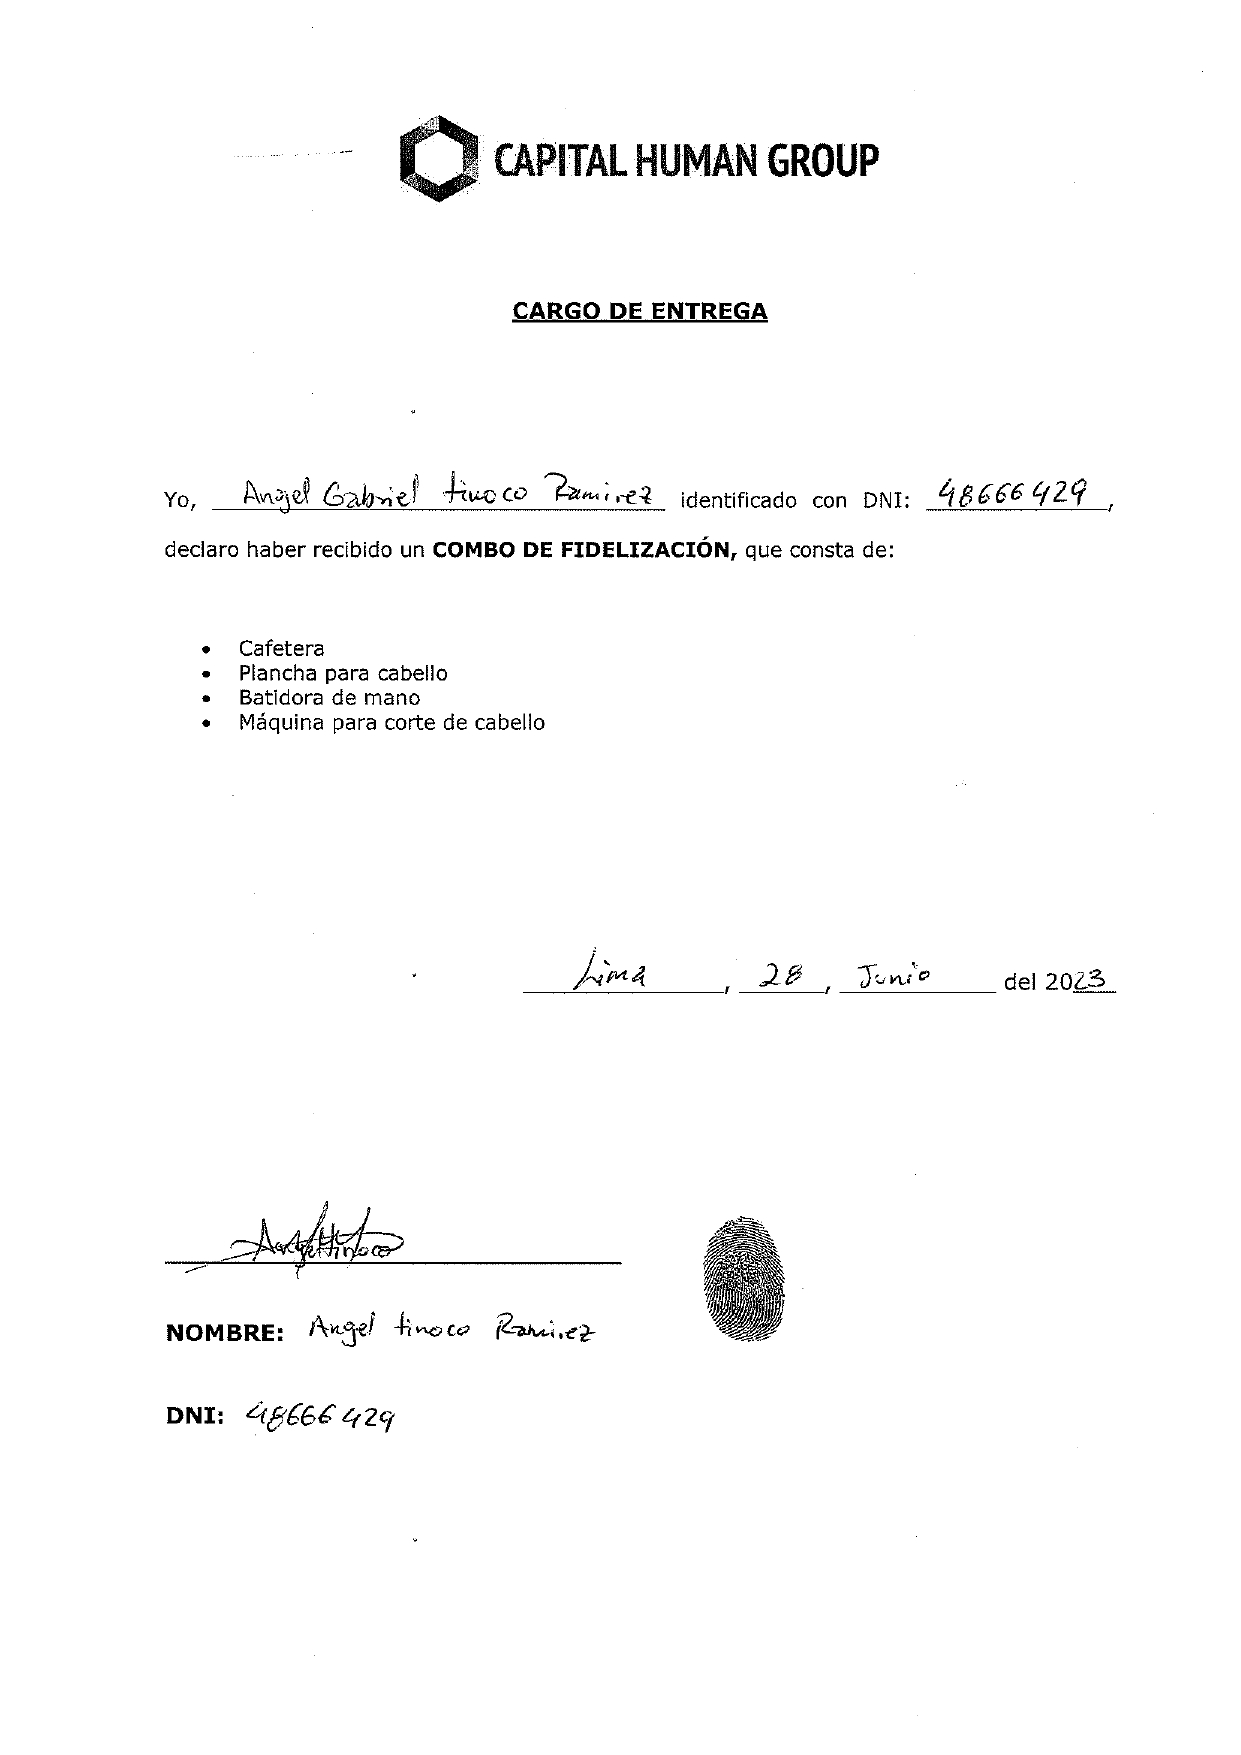 CAPITAL HUMAN GROUP
CARGO DE ENTREGA
Yo, Angel Gabriel tinoco Ramirez identificado con DNI: 48666429,
declaro haber recibido un COMBO DE FIDELIZACIÓN, que consta de:
• Cafetera
• Plancha para cabello
• Batidora de mano
• Máquina para corte de cabello
Lima, 28, Junio del 2023
Angel tinoco
NOMBRE: Angel tinoco Ramirez
DNI: 48666429